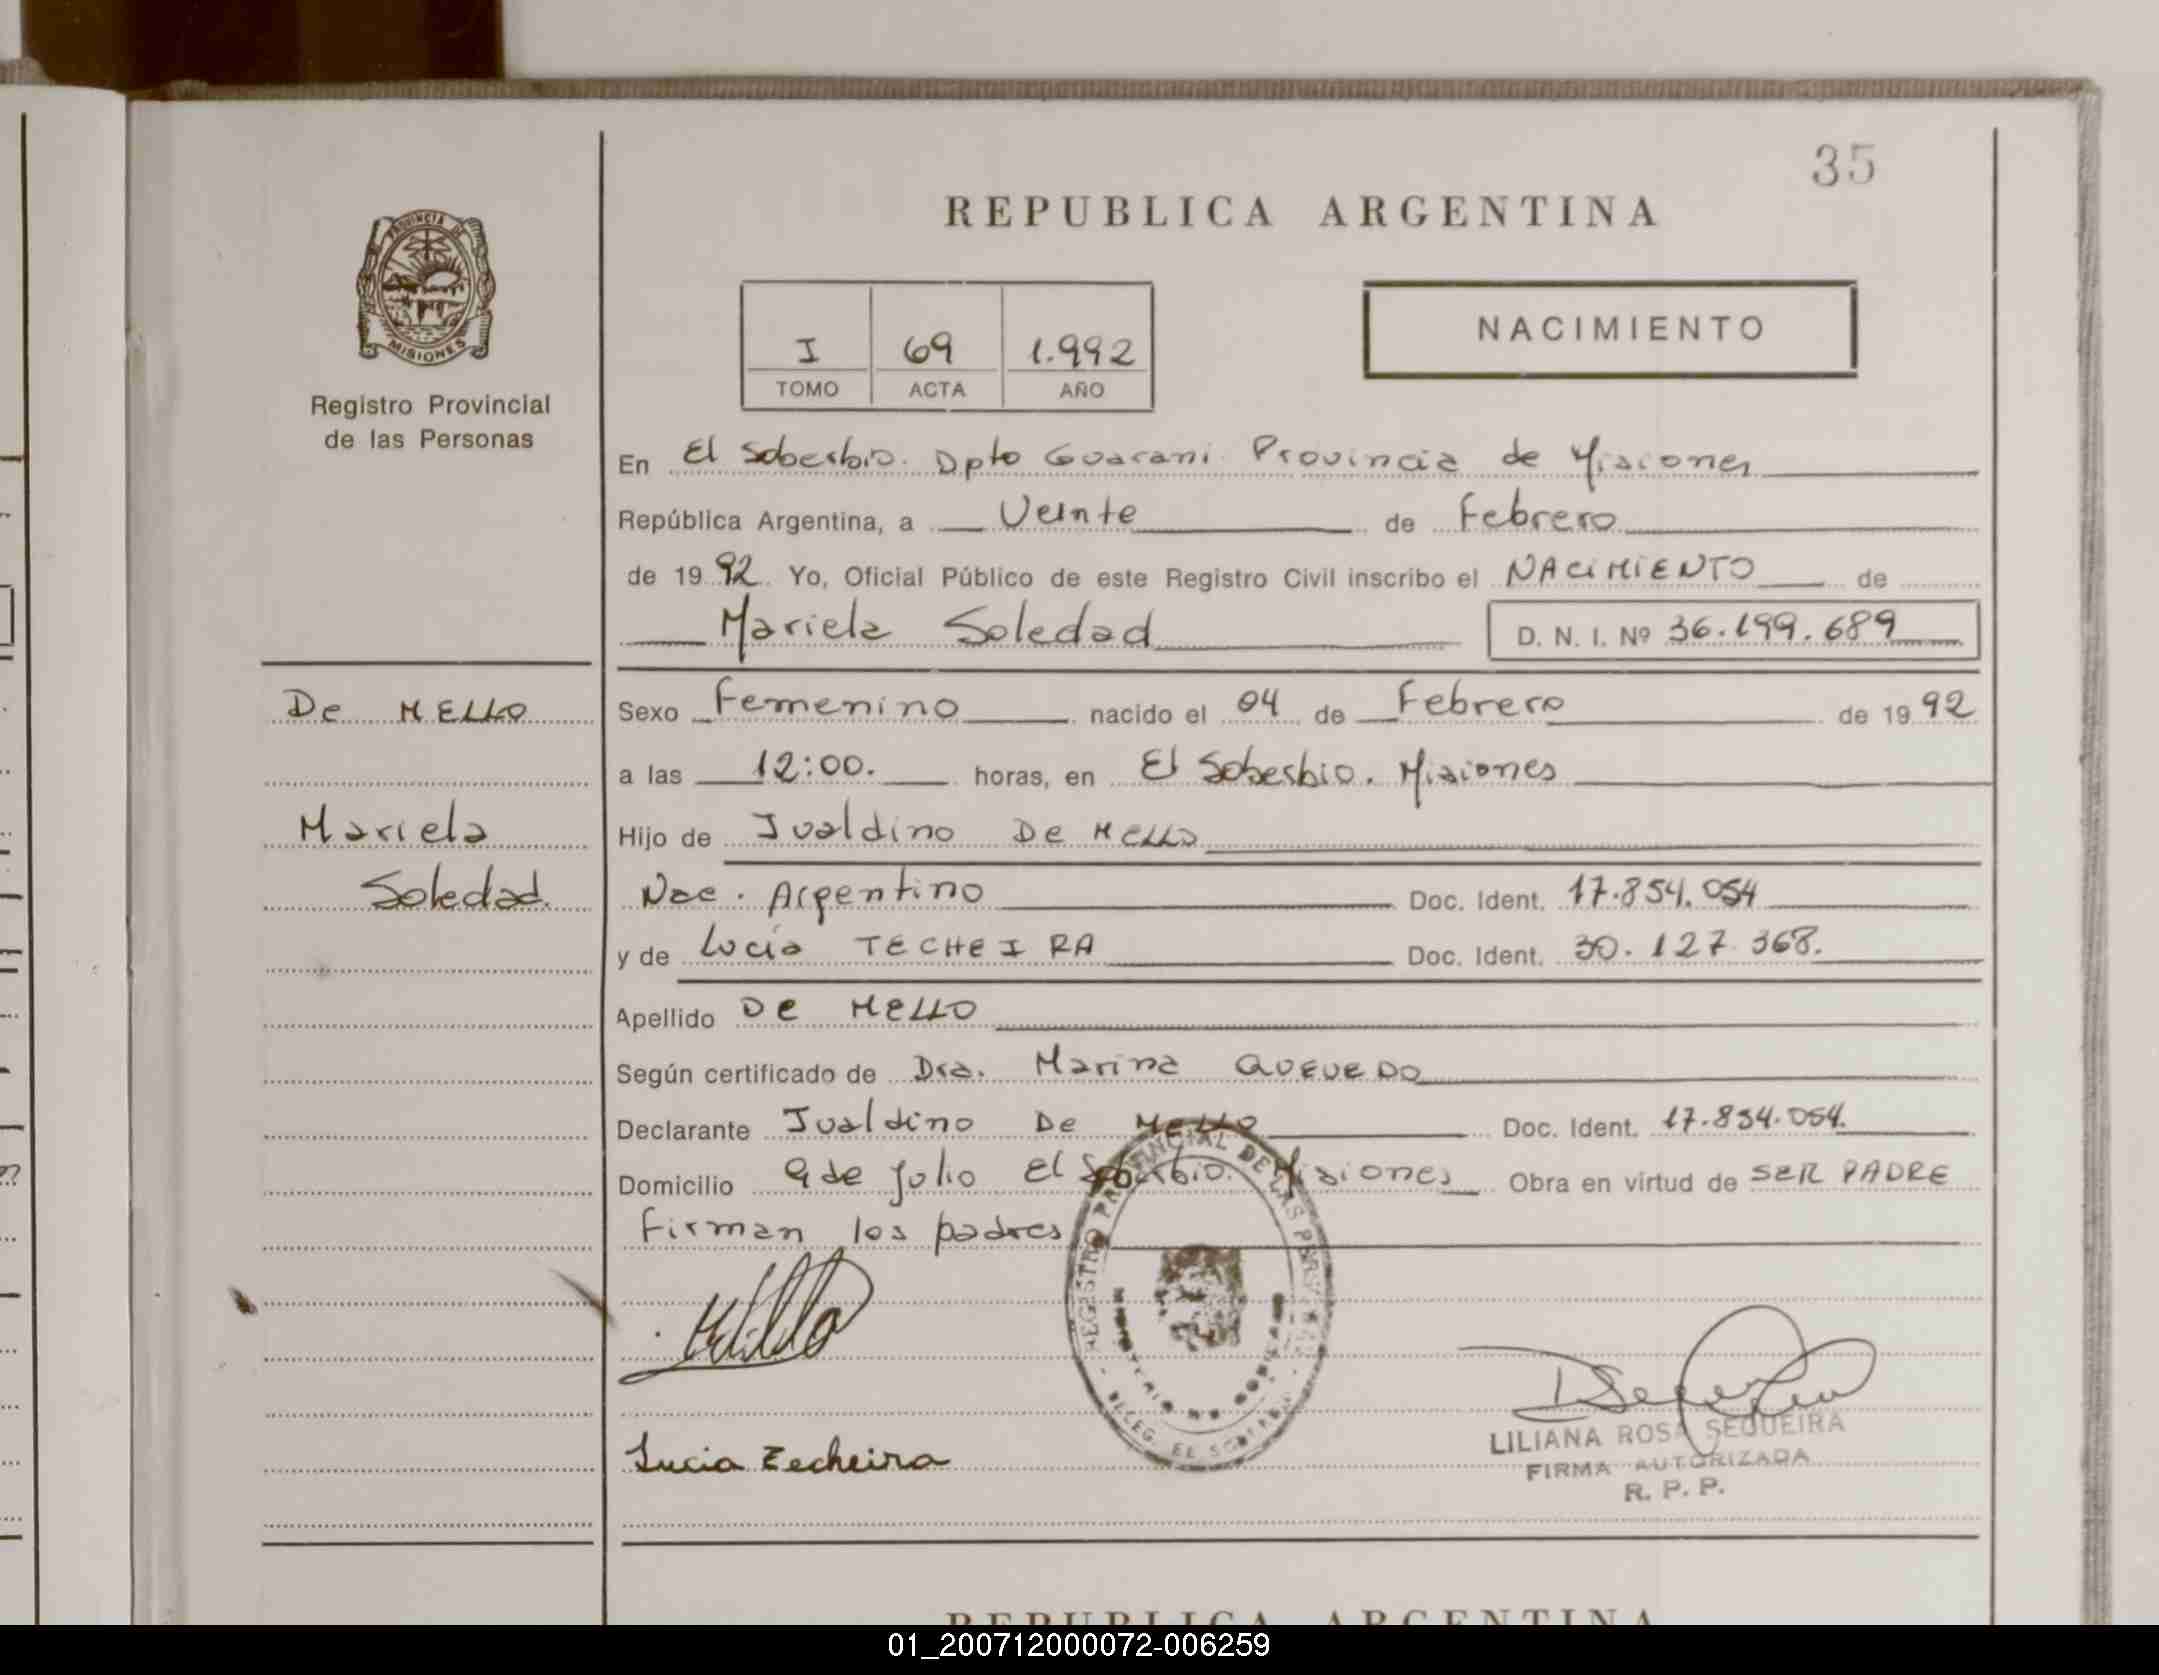 35
REPUBLICA ARGENTINA
PROVINCIA DE
MISIONES
Registro Provincial
de las Personas
I 69 1.992
TOMO ACTA AÑO
NACIMIENTO
En El Soberbio. Dpto Guarani Provincia de Misiones
República Argentina, a Veinte de Febrero
de 19 92 Yo, Oficial Público de este Registro Civil inscribo el NACIMIENTO de
Mariela Soledad D. N. I. Nº 36.199.689
De MELLO
Sexo Femenino nacido el 04 de Febrero de 19 92
a las 12:00. horas, en El Soberbio. Misiones
Mariela
Hijo de Jualdino De MELLO
Soledad.
Nac. Argentino Doc. Ident. 17.854.054
y de Lucia TECHEIRA Doc. Ident. 30.127.368.
Apellido De MELLO
Según certificado de Dra. Marina QUEVEDO
Declarante Jualdino De MELLO Doc. Ident. 17.834.054.
Domicilio 9 de Julio El Soberbio. Misiones Obra en virtud de SER PADRE
Firman los padres
REGISTRO PROVINCIAL DE LAS PERSONAS
Lucia Techeira
LILIANA ROSA SEQUEIRA
FIRMA AUTORIZADA
R. P. P.
REPUBLICA ARGENTINA
01_200712000072-006259